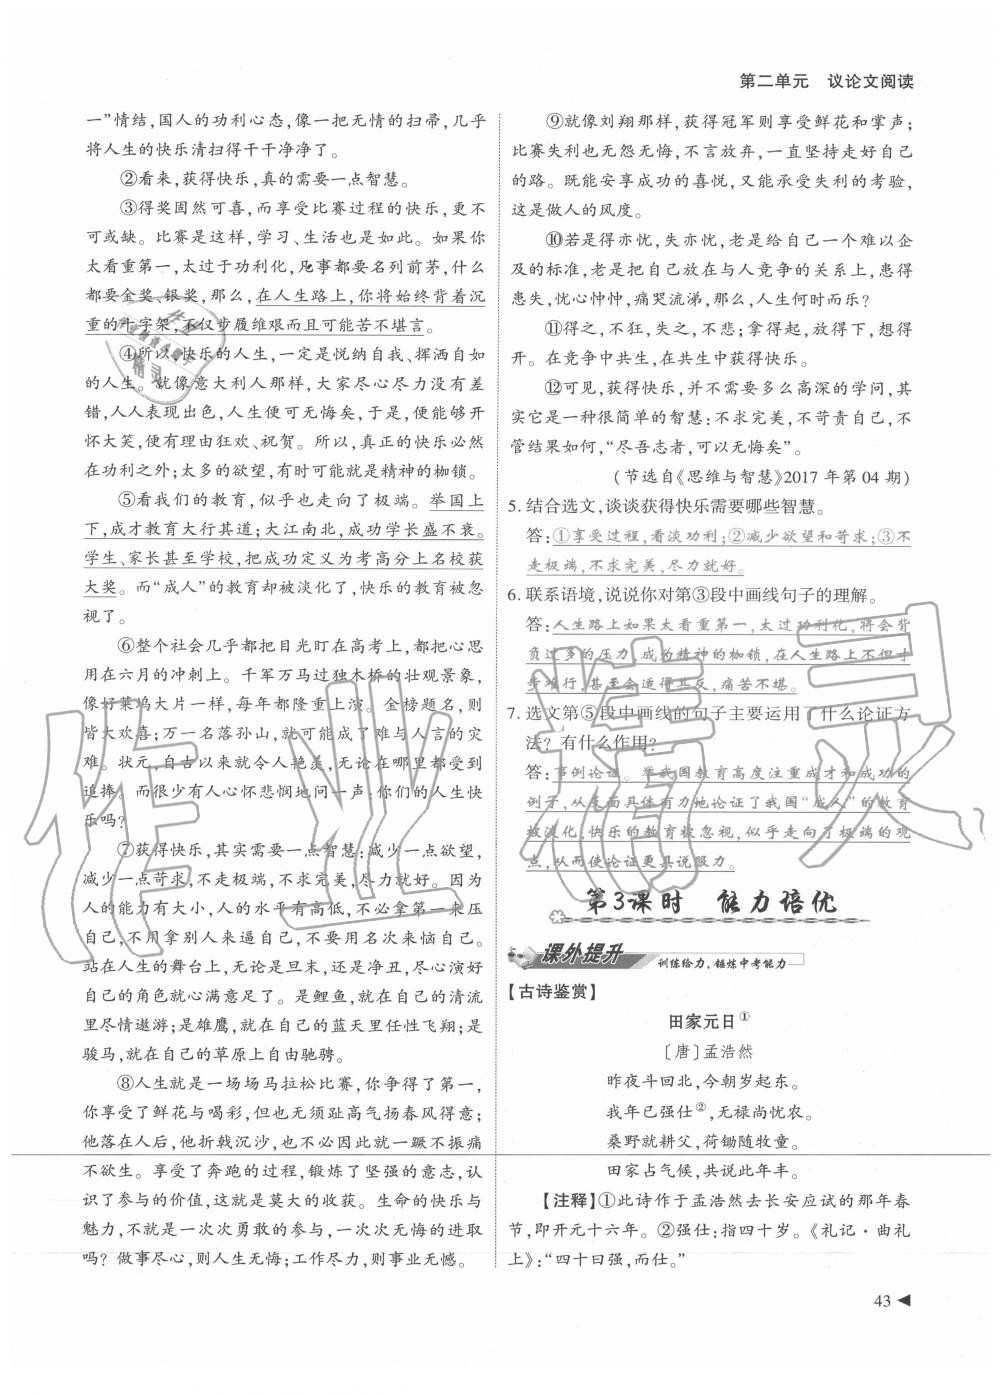 第二单元　议论文阅读
一”情结,国人的功利心态,像一把无情的扫帚,几乎
将人生的快乐清扫得干干净净了。
②看来,获得快乐,真的需要一点智慧。
③得奖固然可喜,而享受比赛过程的快乐,更不
可或缺。比赛是这样,学习、生活也是如此。如果你
太看重第一,太过于功利化,凡事都要名列前茅,什么
都要金奖、银奖,那么,在人生路上,你将始终背着沉
重的十字架,不仅步履维艰而且可能苦不堪言。
④所以,快乐的人生,一定是悦纳自我、挥洒自如
的人生。就像意大利人那样,大家尽心尽力没有差
错,人人表现出色,人生便可无悔矣,于是,便能够开
怀大笑,便有理由狂欢、祝贺。所以,真正的快乐必然
在功利之外;太多的欲望,有时可能就是精神的枷锁。
⑤看我们的教育,似乎也走向了极端。举国上
下,成才教育大行其道;大江南北,成功学长盛不衰。
学生、家长甚至学校,把成功定义为考高分上名校获
大奖。而“成人”的教育却被淡化了,快乐的教育被忽
视了。
⑥整个社会几乎都把目光盯在高考上,都把心思
用在六月的冲刺上。千军万马过独木桥的壮观景象,
像好莱坞大片一样,每年都隆重上演。金榜题名,则
皆大欢喜;万一名落孙山,就可能成了难与人言的灾
难。状元,自古以来就令人艳羡,无论在哪里都受到
追捧。而很少有人心怀悲悯地问一声:你们的人生快
乐吗?
⑦获得快乐,其实需要一点智慧:减少一点欲望,
减少一点苛求,不走极端,不求完美,尽力就好。因为
人的能力有大小,人的水平有高低,不必拿第一来压
自己,不用拿别人来逼自己,不要用名次来恼自己。
站在人生的舞台上,无论是旦末,还是净丑,尽心演好
自己的角色就心满意足了。是鲤鱼,就在自己的清流
里尽情遨游;是雄鹰,就在自己的蓝天里任性飞翔;是
骏马,就在自己的草原上自由驰骋。
⑧人生就是一场场马拉松比赛,你争得了第一,
你享受了鲜花与喝彩,但也无须趾高气扬春风得意;
他落在人后,他折戟沉沙,也不必因此就一蹶不振痛
不欲生。享受了奔跑的过程,锻炼了坚强的意志,认
识了参与的价值,这就是莫大的收获。生命的快乐与
魅力,不就是一次次勇敢的参与,一次次无悔的进取
吗?做事尽心,则人生无悔;工作尽力,则事业无憾。
⑨就像刘翔那样,获得冠军则享受鲜花和掌声;
比赛失利也无怨无悔,不言放弃,一直坚持走好自己
的路。既能安享成功的喜悦,又能承受失利的考验,
这是做人的风度。
⑩若是得亦忧,失亦忧,老是给自己一个难以企
及的标准,老是把自己放在与人竞争的关系上,患得
患失,忧心忡忡,痛哭流涕,那么,人生何时而乐?
⑪得之,不狂,失之,不悲;拿得起,放得下,想得
开。在竞争中共生,在共生中获得快乐。
⑫可见,获得快乐,并不需要多么高深的学问,其
实它是一种很简单的智慧:不求完美,不苛责自己,不
管结果如何,“尽吾志者,可以无悔矣”。
(节选自《思维与智慧》2017年第04期)
5. 结合选文,谈谈获得快乐需要哪些智慧。
答:①享受过程,看淡功利;②减少欲望和苛求;③不
走极端,不求完美,尽力就好。
6. 联系语境,说说你对第③段中画线句子的理解。
答:人生路上如果太看重第一,太过功利化,将会背
负过多的压力,成为精神的枷锁,在人生路上不但寸
步难行,甚至会适得其反,痛苦不堪。
7. 选文第⑤段中画线的句子主要运用了什么论证方
法?有什么作用?
答:事例论证。举我国教育高度注重成才和成功的
例子,从反面具体有力地论证了我国“成人”的教育
被淡化,快乐的教育被忽视,似乎走向了极端的观
点,从而使论证更具说服力。
第3课时　能力培优
课外提升　训练给力,锤炼中考能力
【古诗鉴赏】
田家元日①
〔唐〕孟浩然
昨夜斗回北,今朝岁起东。
我年已强仕②,无禄尚忧农。
桑野就耕父,荷锄随牧童。
田家占气候,共说此年丰。
【注释】①此诗作于孟浩然去长安应试的那年春
节,即开元十六年。②强仕:指四十岁。《礼记·曲礼
上》:“四十曰强,而仕。”
43
作业精灵